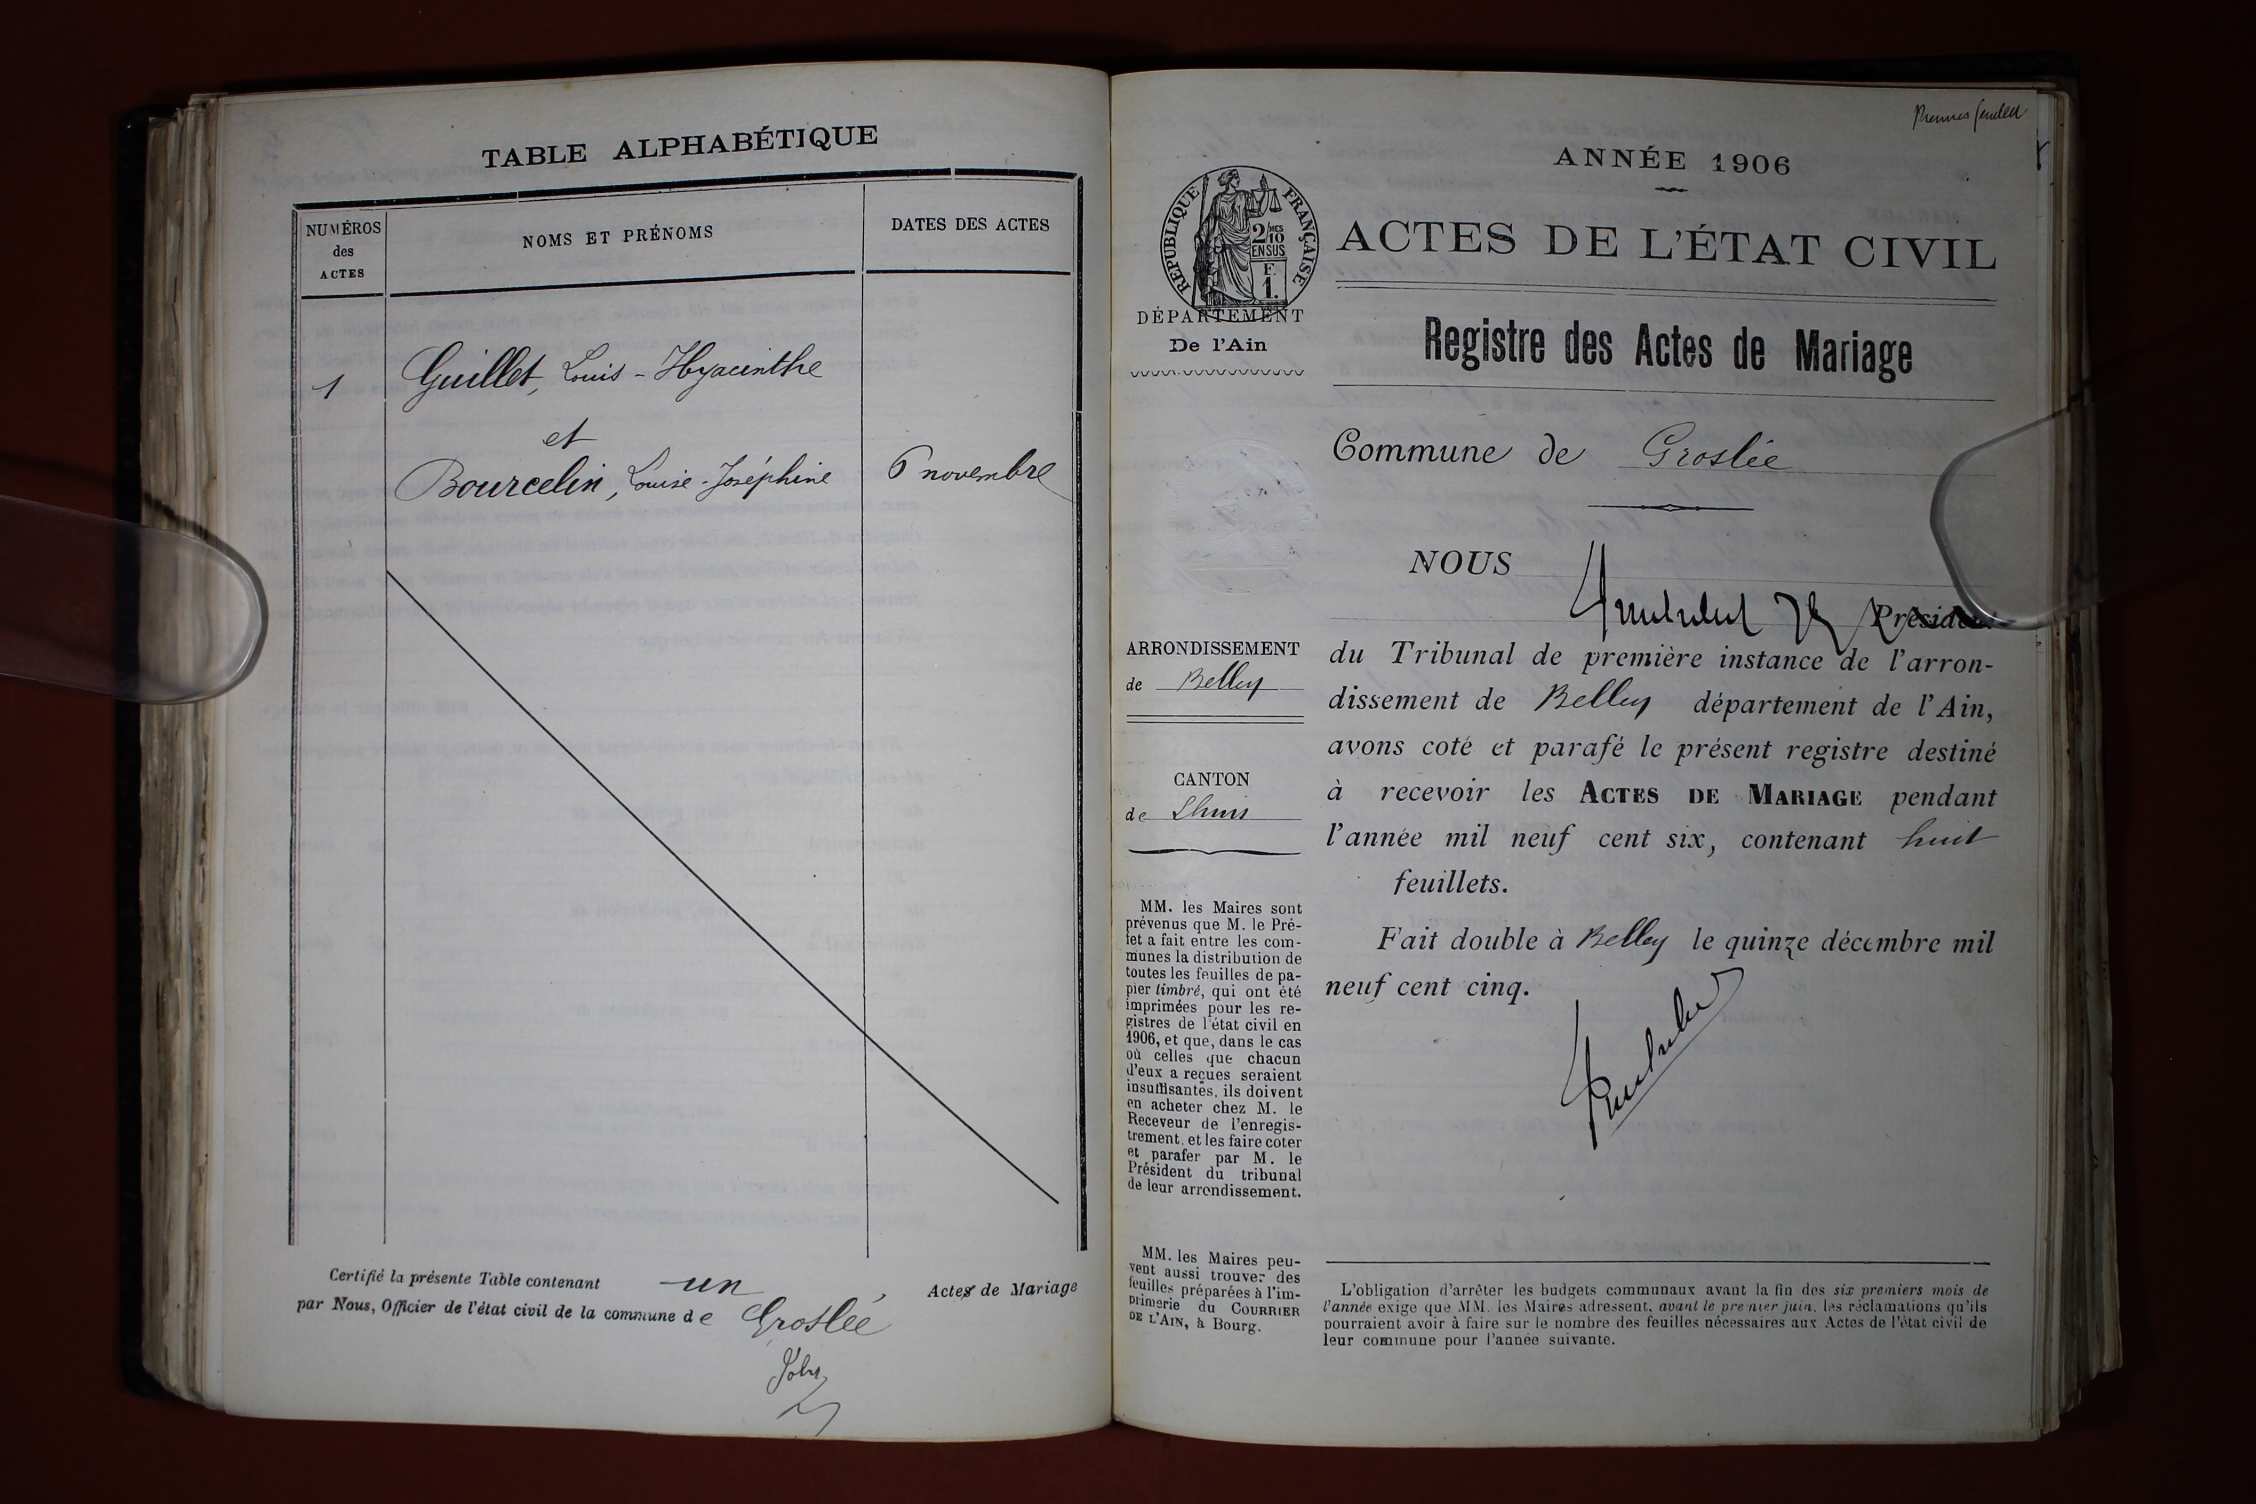 TABLE ALPHABÉTIQUE
NUMÉROS
des
ACTES
NOMS ET PRÉNOMS
DATES DES ACTES
1
Guillet, Louis-Hyacinthe
et
Bourcelin, Louise-Joséphine
6 novembre
Certifié la présente Table contenant un Actes de Mariage
par Nous, Officier de l'état civil de la commune de Groslée
ANNÉE 1906
RÉPUBLIQUE FRANÇAISE
2/10 MES
EN SUS
F.
1.
ACTES DE L'ÉTAT CIVIL
DÉPARTEMENT
De l'Ain
Registre des Actes de Mariage
Commune de Groslée
NOUS
Président
du Tribunal de première instance de l'arron-
dissement de Belley département de l'Ain,
avons coté et parafé le présent registre destiné
à recevoir les ACTES DE MARIAGE pendant
l'année mil neuf cent six, contenant huit
feuillets.
Fait double à Belley le quinze décembre mil
neuf cent cinq.
ARRONDISSEMENT
de Belley
CANTON
de Lhuis
MM. les Maires sont
prévenus que M. le Pré-
fet a fait entre les com-
munes la distribution de
toutes les feuilles de pa-
pier timbré, qui ont été
imprimées pour les re-
gistres de l'état civil en
1906, et que, dans le cas
où celles que chacun
d'eux a reçues seraient
insuffisantes, ils doivent
en acheter chez M. le
Receveur de l'enregis-
trement, et les faire coter
et parafer par M. le
Président du tribunal
de leur arrondissement.
MM. les Maires peu-
vent aussi trouver des
feuilles préparées à l'im-
primerie du COURRIER
DE L'AIN, à Bourg.
L'obligation d'arrêter les budgets communaux avant la fin des six premiers mois de
l'année exige que MM. les Maires adressent, avant le premier juin, les réclamations qu'ils
pourraient avoir à faire sur le nombre des feuilles nécessaires aux Actes de l'état civil de
leur commune pour l'année suivante.